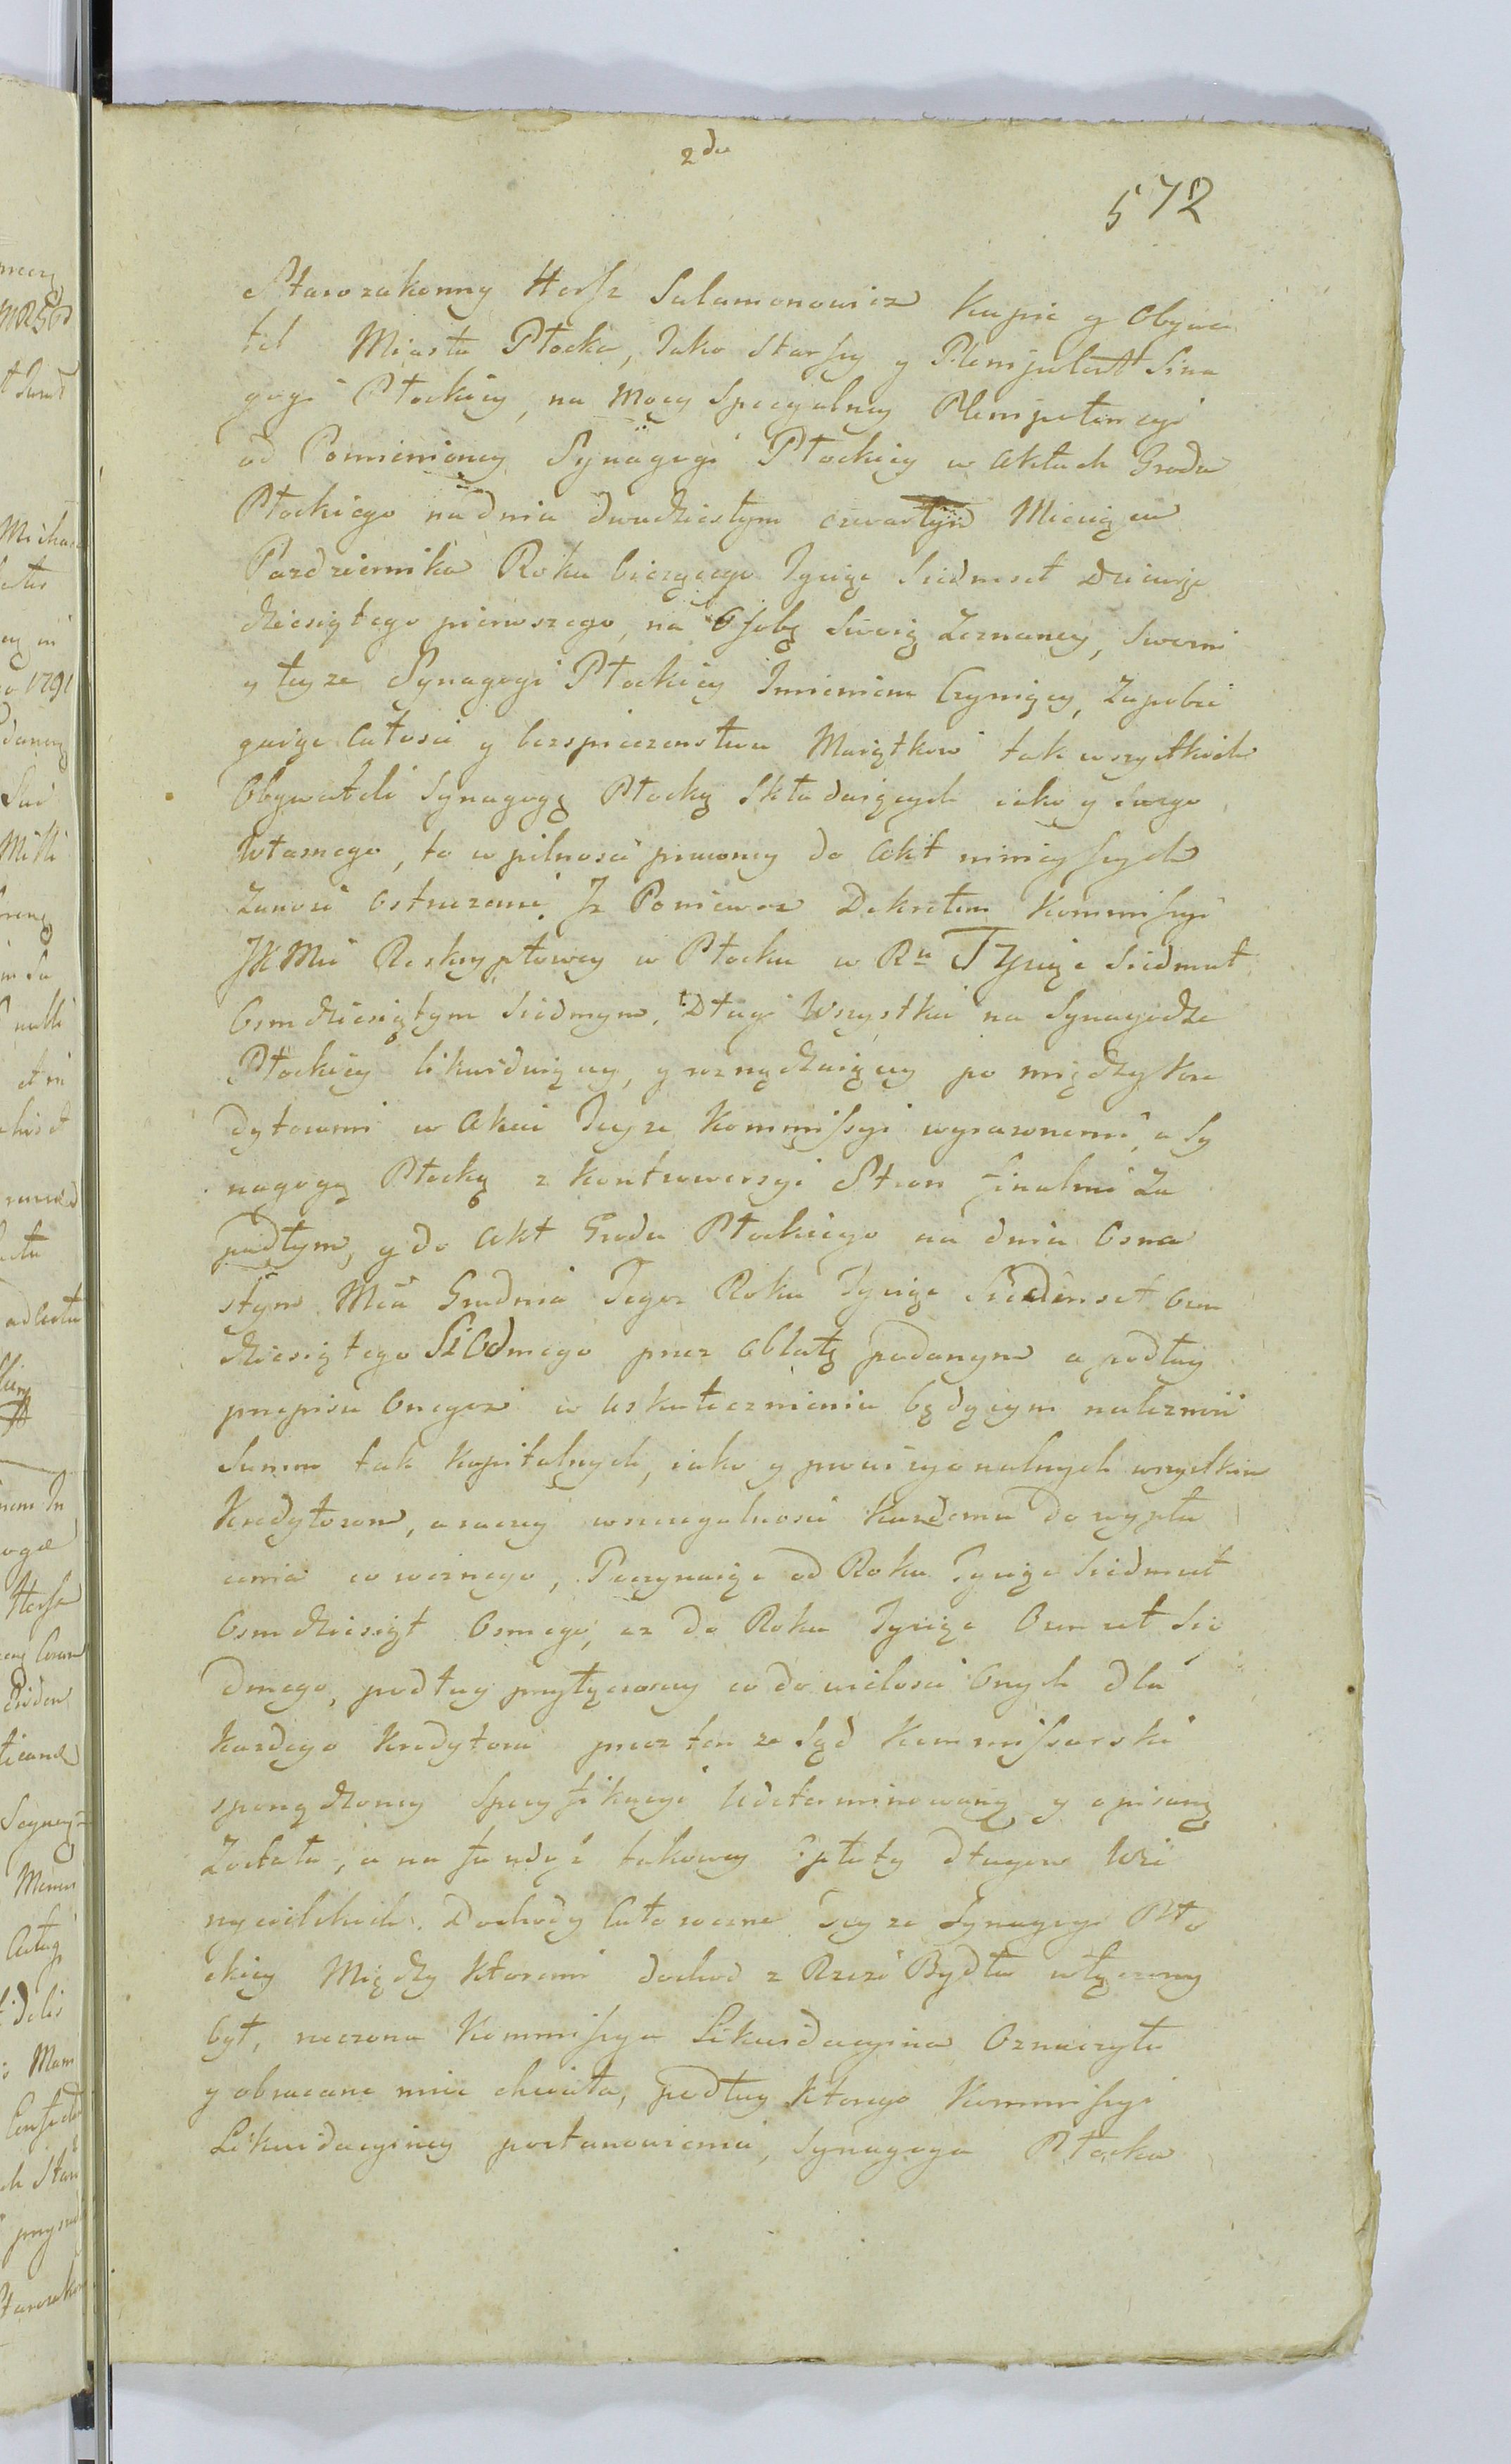 2do
572
Starozakonny Hersz Salamonowicz Kupiec y Obywa
tel Miasta Płocka, Jako Starszy y Plenipotent Sina
gogi Płockiey, na Mocy Specyalney Plenipotencyi
od Pomienioney Synagogi Płockiey w Aktach Grodu
Płockiego na dniu dwudziestym czwartym Miesiąca
Pazdziernika Roku bieżącego Tysiąc Siedmset Dziewię
dziesiątego pierwszego, na Osobę Swoię Zeznaney, Swoim
y teyze Synagogi Płockiey Imieniem Czyniący, Zapobie
gaiąc Całości y bezpieczenstwu Maiątkow tak wszystkich
Obywateli Synagogę Płocką Składaiących iako y Swego
Własnego, to w pilności prawney do Akt ninieyszych
Zanosi Ostrzezenie. Iz Poniewaz Dekretem Kommissyi
JKMci Reskryptowey w Płocku w Ru Tysiąc Siedmset
Osmdziesiątym Siedmym, Długi Wszystkie na Synagodze
Płockiey likwiduiący, y rozrządzaiący po między Kre
dytorami w Akcie Teyze Kommissyi wyrazonemi, a Sy
nagogą Płocką z Kontrowersyi Stron finalnie Za
padłym, y do Akt Grodu Płockiego na dniu Osma
stym Mca Grudnia Tegoz Roku Tysiąc Siedmset Osm
dziesiątego Siodmego przez Oblatę podanym a podług
przepisu Onegoz w uskutecznieniu będącym należność
Summ tak Kapitalnych, iako y prowizyonalnych wszystkim
Kredytorom, a raczey wszczegulności Kazdemu do wypła
cenia co rocznego, Poczynaiąc od Roku Tysiąc Siedmset
Osmdziesiąt Osmego, az do Roku Tysiąc Osmset Sio
dmego, podług przyłączoney co do wielości Onych dla
kazdego Kredytora przez ten ze Sąd Kommissarski
sporządzoney Specyfikacyi Udeterminowaną y opisaną
Została, a na fundusz takowey Spłaty długow Wie
rzycielskich. Dochody Cało roczne Teyze Synagogi Pło
ckiey Między Ktoremi dochod z Rzezi Bydła włączony
był, rzeczona Kommissya Likwidacyina Oznaczyła
y obracane mieć chciała, podług Ktorego Kommissyi
Likwidacyiney postanowienia, Synagoga Płocka